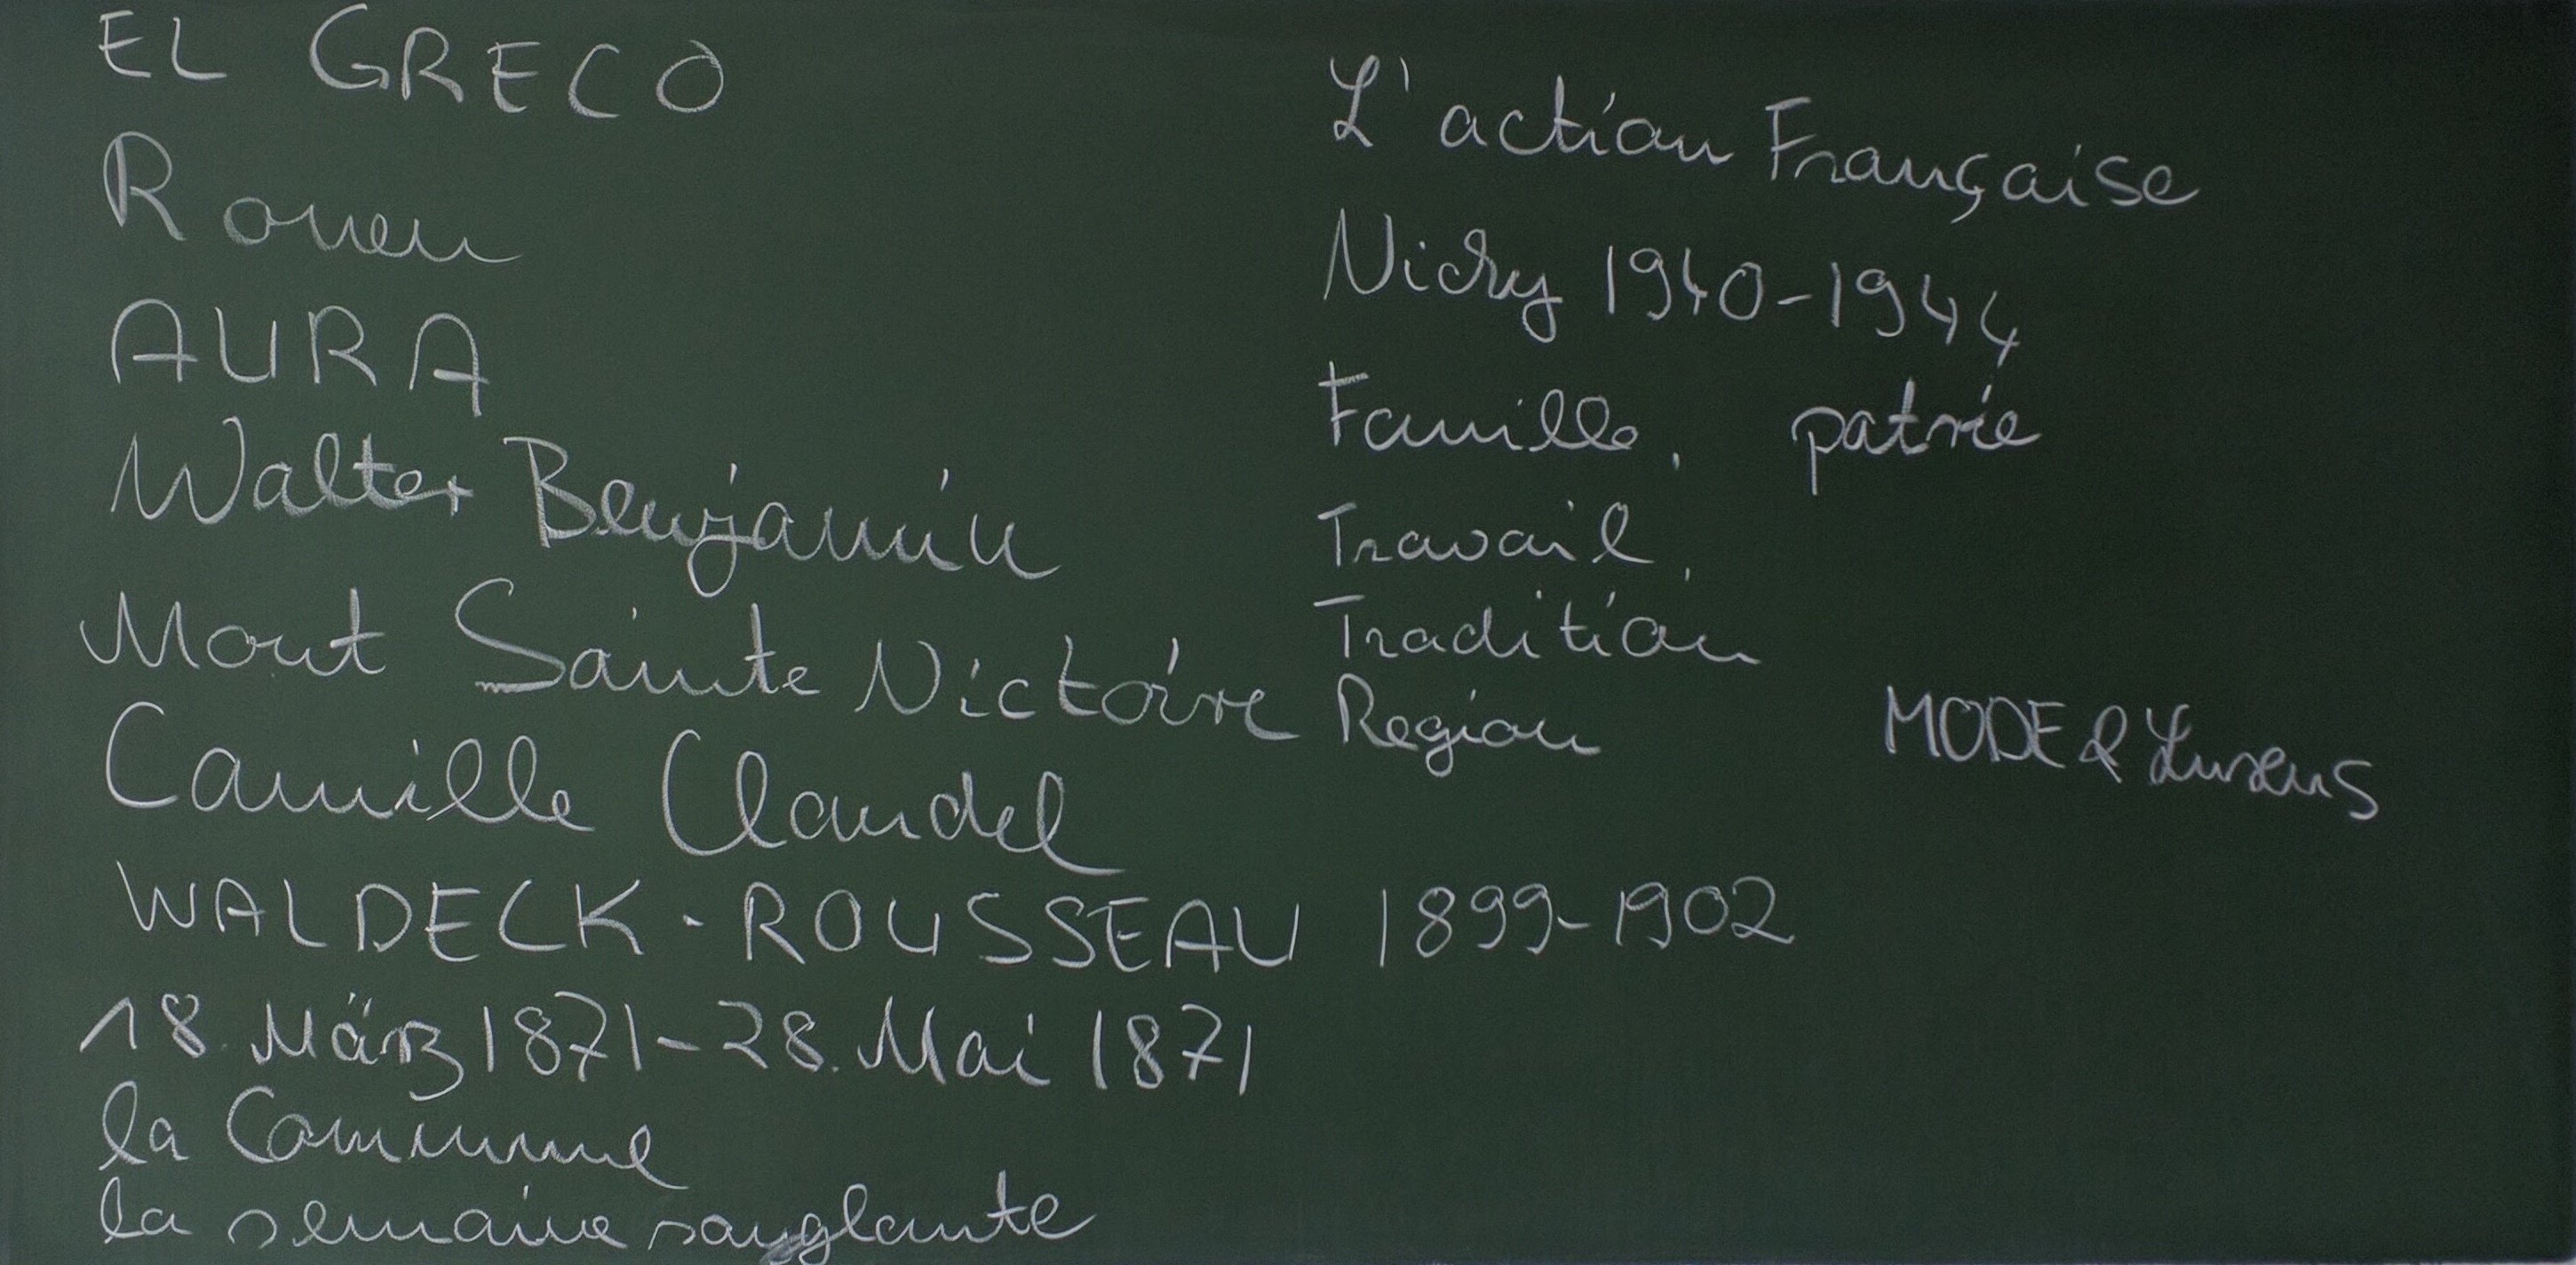 EL GRECO
Rouen
AURA
Walter Benjamin
Mont Sainte Victoire
Camille Claudel
WALDECK-ROUSSEAU 1899-1902
18. März 1871-28. Mai 1871
la Commune
la semaine sanglante
L'action Française
Vichy 1940-1944
Famille, patrie
Travail,
Tradition
Region
MODE & Luxus